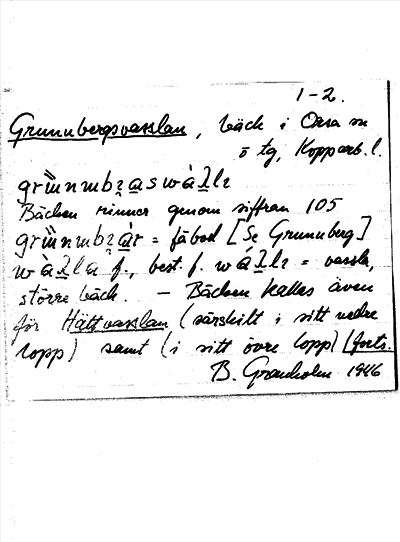 1-2.
Grunubergsvasslan, bäck i Orsa sn
o tg, Kopparb. l.
Bäcken rinner genom siffran 105
= fäbod [Se Grunuberg]
f., best. f. = vassla,
större bäck. – Bäcken kallas även
för Hättvasslan (särskilt i sitt nedre
lopp) samt (i sitt övre lopp) [forts.
B. Granholm 1946